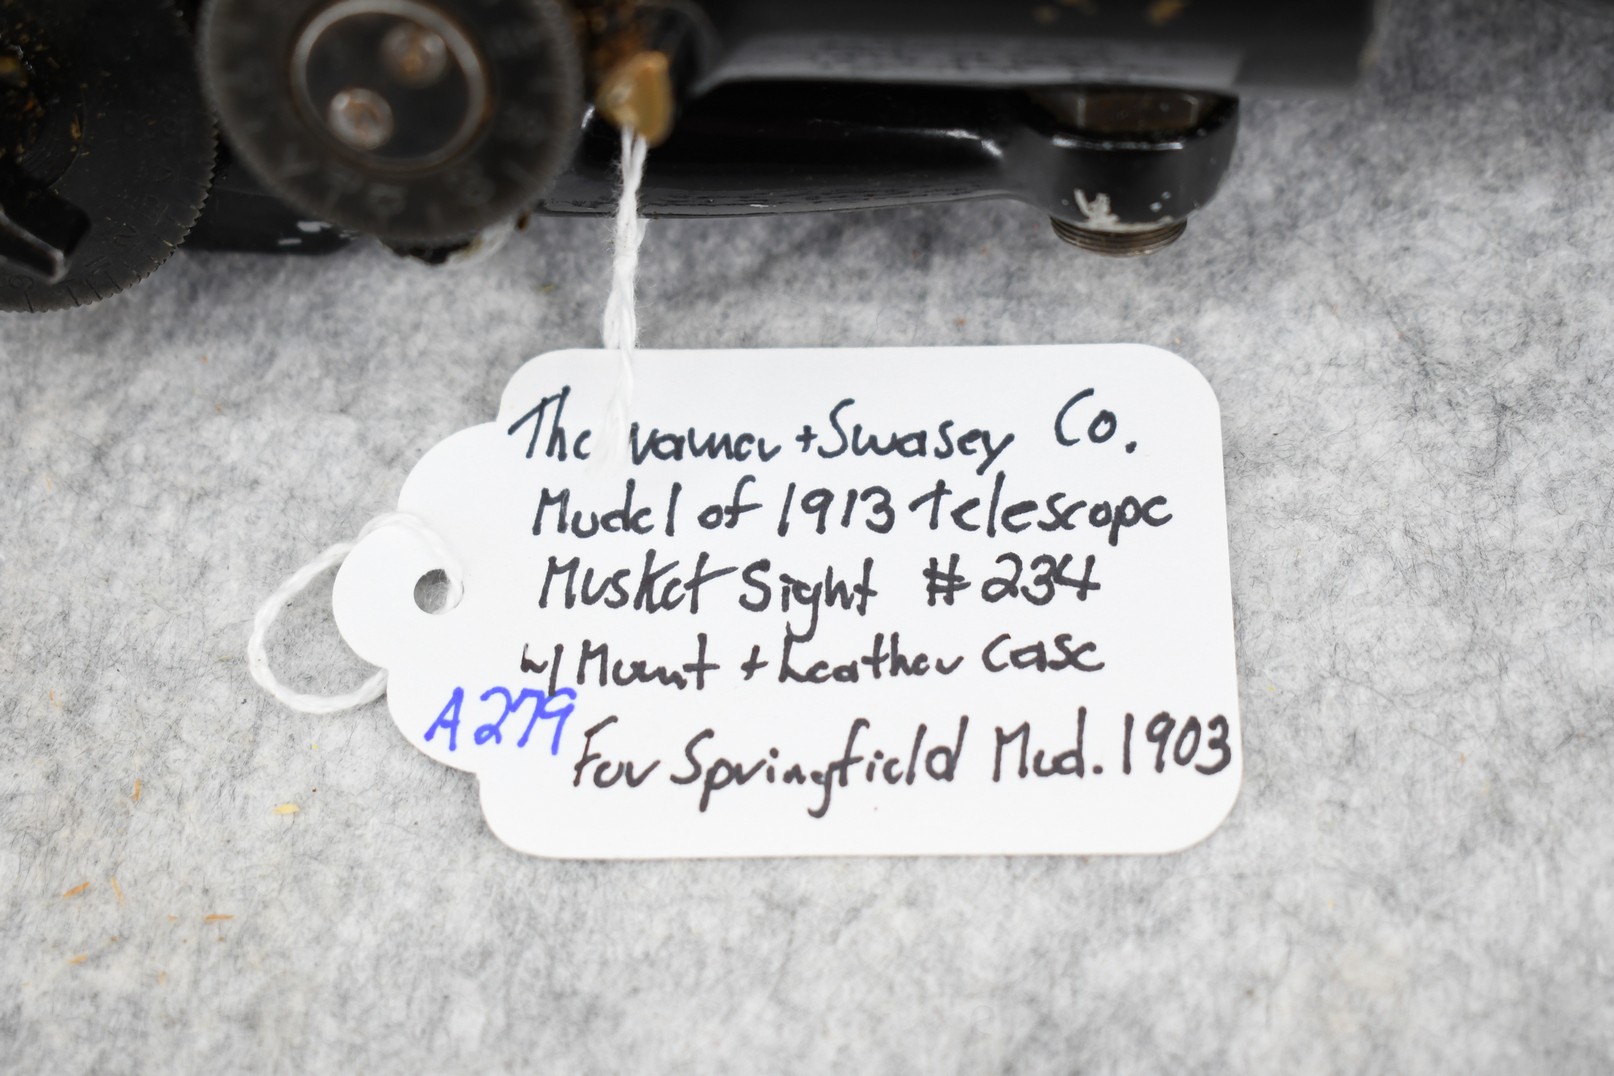 The Warner + Swasey Co.
Model of 1913 Telescope
Musket Sight #234
w/ Mount + Leather Case
A279
For Springfield Mod. 1903